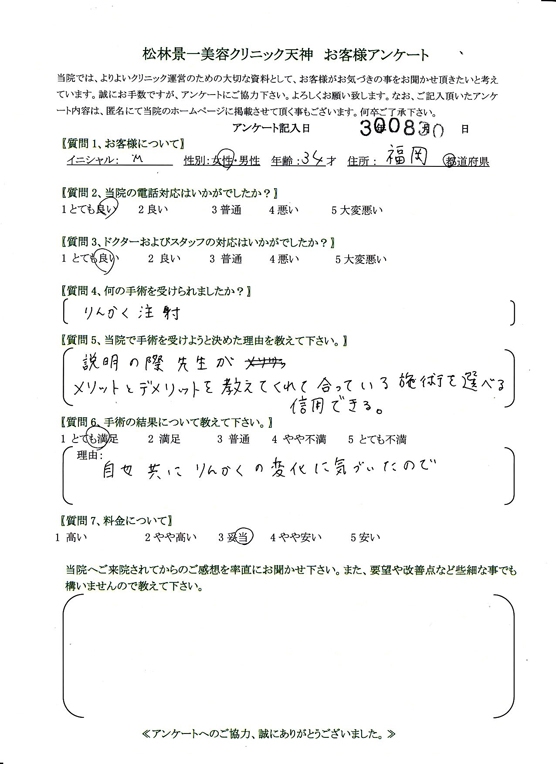 松林景一美容クリニック天神　お客様アンケート
当院では、よりよいクリニック運営のための大切な資料として、お客様がお気づきの事をお聞かせ頂きたいと考え
ています。誠にお手数ですが、アンケートにご協力下さい。よろしくお願い致します。なお、ご記入頂いたアンケ
ート内容は、匿名にて当院のホームページに掲載させて頂く事もございます。何卒ご了承下さい。
アンケート記入日　30年08月30日
〖質問 1、お客様について〗
イニシャル： M　性別：女性・男性　年齢：34才　住所： 福岡 都道府県
〖質問 2、当院の電話対応はいかがでしたか？〗
1 とても良い　2 良い　3 普通　4 悪い　5 大変悪い
〖質問 3、ドクターおよびスタッフの対応はいかがでしたか？〗
1 とても良い　2 良い　3 普通　4 悪い　5 大変悪い
〖質問 4、何の手術を受けられましたか？〗
りんかく注射
〖質問 5、当院で手術を受けようと決めた理由を教えて下さい。〗
説明の際先生が
メリットとデメリットを教えてくれて合っている施術を選べる
信用できる。
〖質問 6、手術の結果について教えて下さい。〗
1 とても満足　2 満足　3 普通　4 やや不満　5 とても不満
理由：
自也共にりんかくの変化に気づいたので
〖質問 7、料金について〗
1 高い　2 やや高い　3 妥当　4 やや安い　5 安い
当院へご来院されてからのご感想を率直にお聞かせ下さい。また、要望や改善点など些細な事でも
構いませんので教えて下さい。
≪アンケートへのご協力、誠にありがとうございました。≫